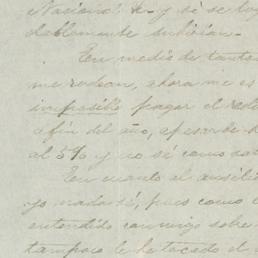 Nacional. X- y si se
dablemente subirían.-
En medio de tantos
me rodean, ahora me es
imposible pagar el red
a fin del año, apesar de
al 5% y no sé como sa
En cuanto al auxilio
yo nada sé, pues como
entendido conmigo sobre
tampoco le he tocado el